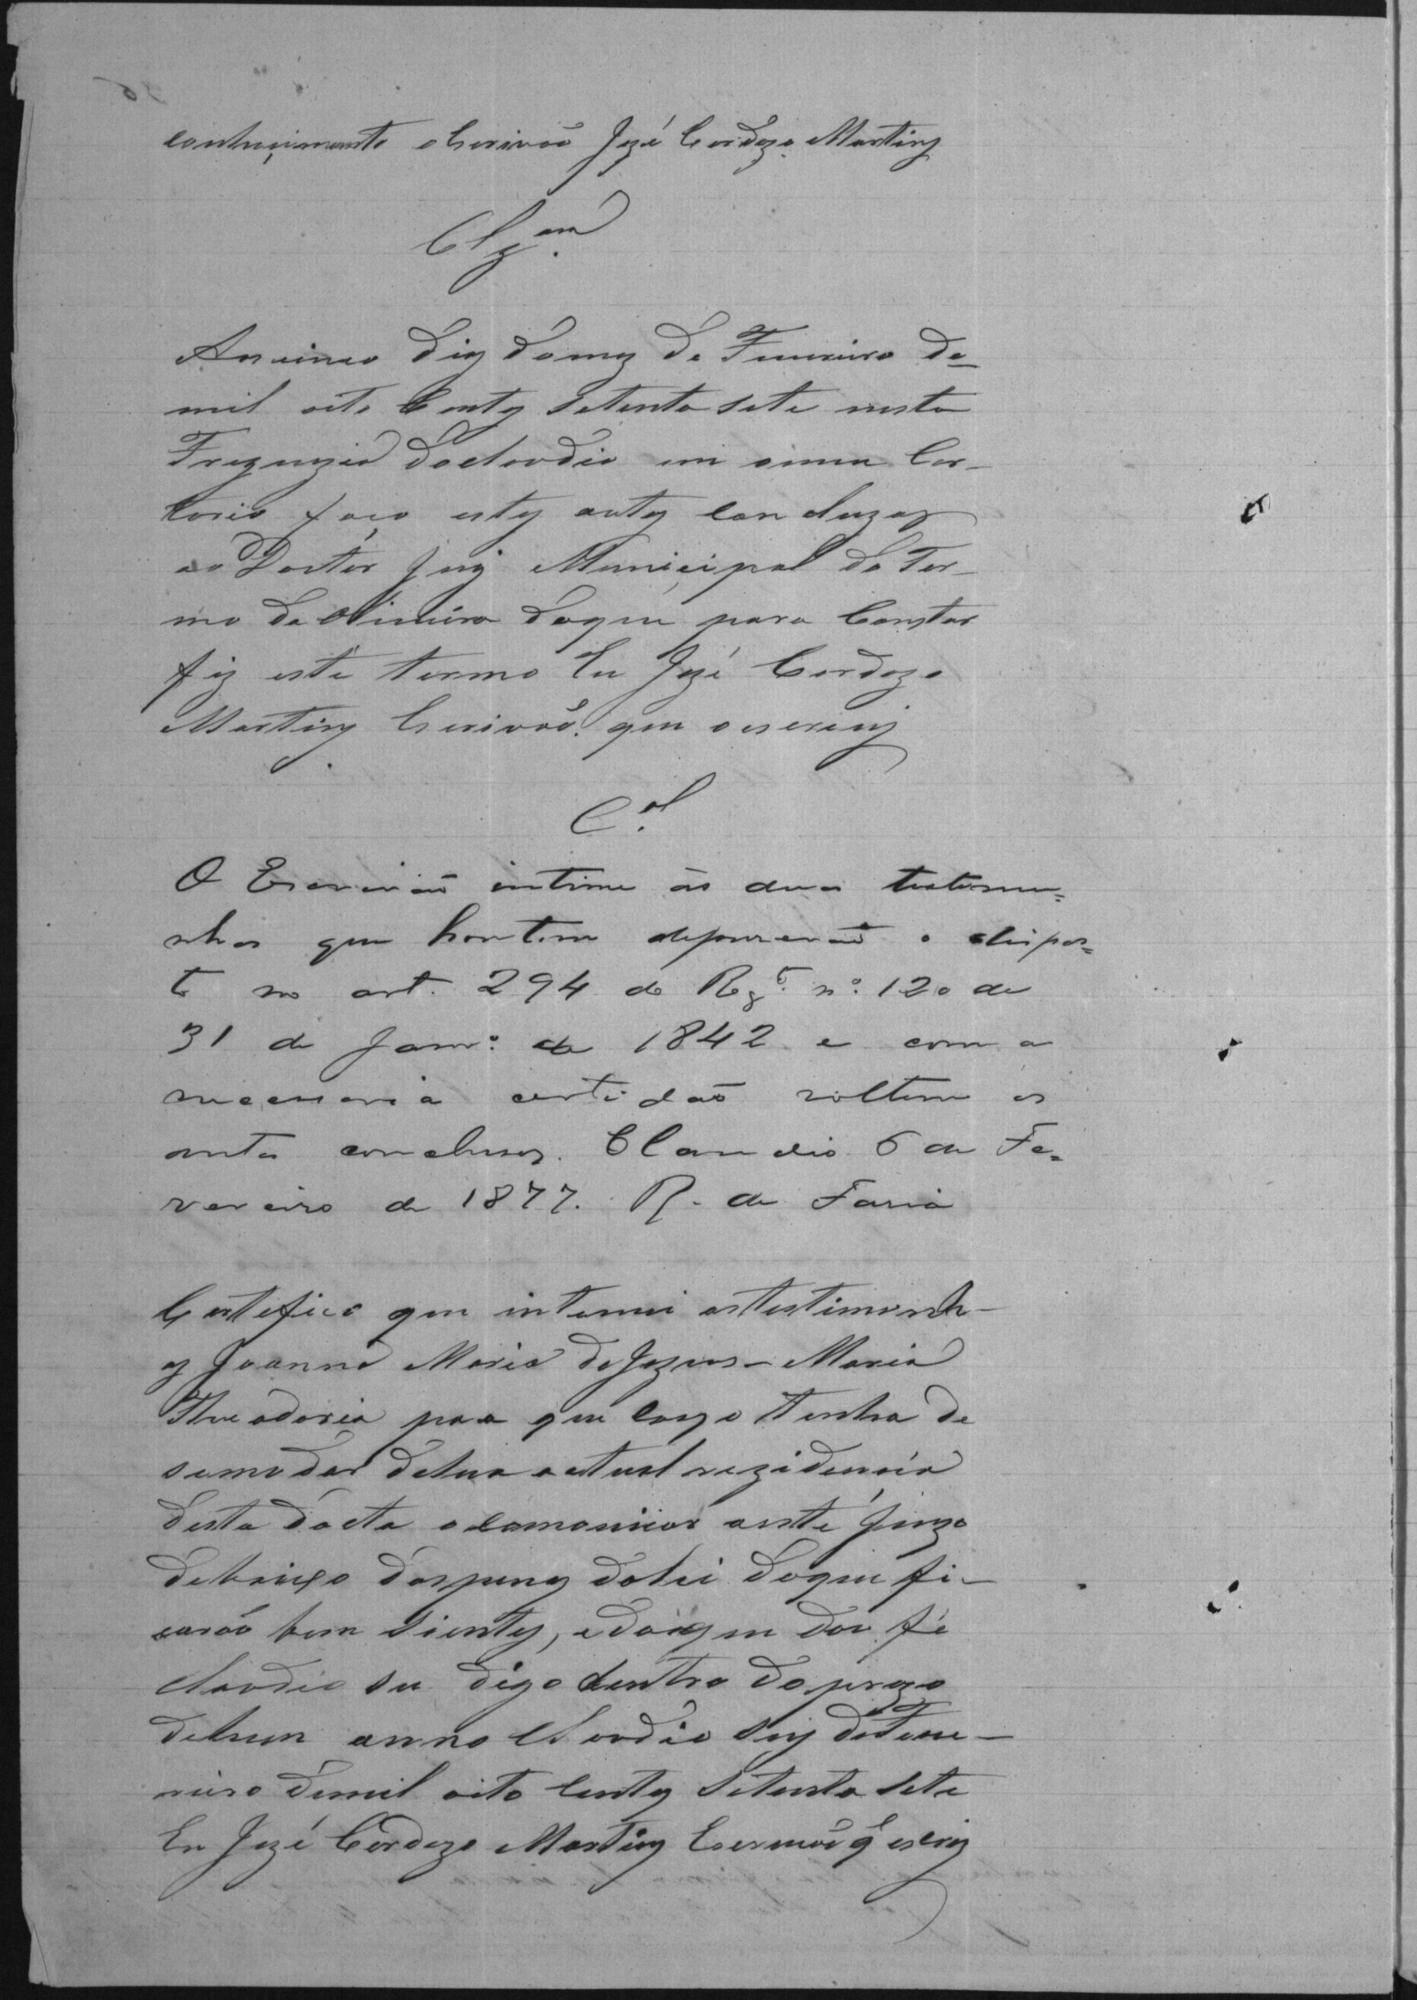 conhecimento oEscrivão José Cardozo Martins
Clzam
Aoscinco dias domes de Feuereiro de
mil oito Centos Setenta Sete nesta
Freguezia doclaudio em omeu Car-
torio faço estes autos concluzos
ao Doutor Juiz Municipal do Ter-
mo de oliueira doque para Constar
fiz este termo Eu José Cardozo
Martins Escrivão que oescrevy
C.el
O Escrivão intime às duas testemu=
nhas que hontem depuserão o dispos=
to no art. 294 do Reg.to nº 120 de
31 de Janrº de 1842 e com a
necessaria certidão voltem os
autos conclusos. Claudio 6 de Fe=
vereiro de 1877. R. de Faria
Certefico que intemei astestimonh-
as Joanna Maria deJezus - Maria
Theadoria para que cazo tenha de
semudar desua actual rezidencia
desta data acomonicar aeste Juizo
debaixo daspenas dalei doque fi-
carão bem sientes, edoque dou fé
claudio seis digo dentro do prazo
dehum anno Claudio seis de Feue-
reiro demil oito Centos Setenta Sete
Eu José Cardozo Martins Escrivão q escrevy